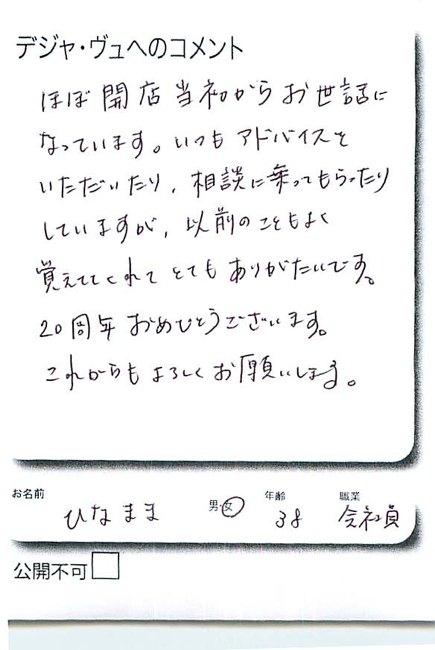 デジャ・ヴュへのコメント
ほぼ開店当初からお世話に
なっています。いつもアドバイスを
いただいたり、相談に乗ってもらったり
していますが、以前のこともよく
覚えててくれてとてもありがたいです。
20周年おめでとうございます。
これからもよろしくお願いします。
お名前 男・女 年齢 職業
ひなまま 38 会社員
公開不可